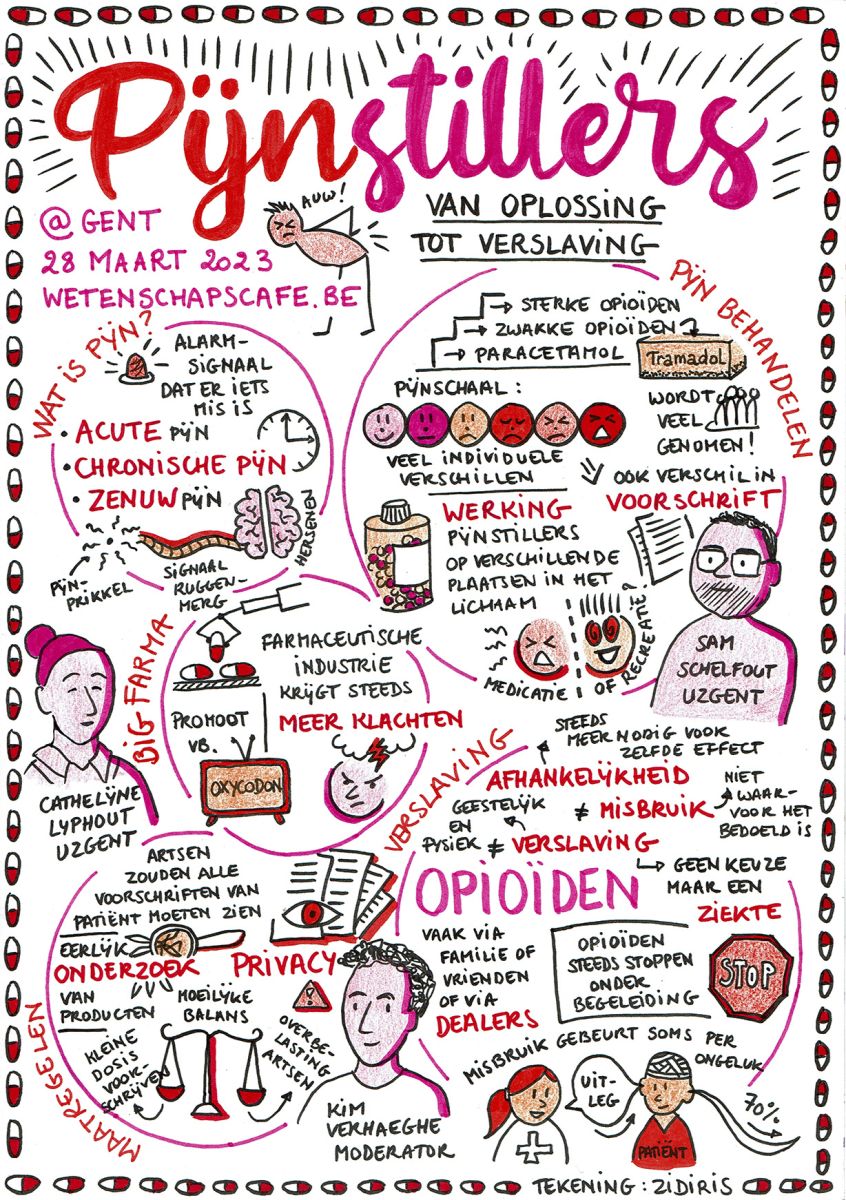 Pijnstillers
VAN OPLOSSING
TOT VERSLAVING
@ GENT
28 MAART 2023
WETENSCHAPSCAFE.BE
AUW!
WAT IS PIJN?
ALARM-
SIGNAAL
DAT ER IETS
MIS IS
• ACUTE PIJN
• CHRONISCHE PIJN
• ZENUWPIJN
PIJN-
PRIKKEL
SIGNAAL
RUGGEN-
MERG
HERSENEN
PIJN BEHANDELEN
→ STERKE OPIOÏDEN
→ ZWAKKE OPIOÏDEN
→ PARACETAMOL
Tramadol
WORDT
VEEL
GENOMEN!
PIJNSCHAAL:
VEEL INDIVIDUELE
VERSCHILLEN
OOK VERSCHIL IN
VOORSCHRIFT
WERKING
PIJNSTILLERS
OP VERSCHILLENDE
PLAATSEN IN HET
LICHAAM
MEDICATIE OF RECREATIE?
SAM
SCHELFOUT
UZGENT
BIG FARMA
FARMACEUTISCHE
INDUSTRIE
KRIJGT STEEDS
MEER KLACHTEN
PROMOOT
VB.
OXYCODON
CATHELIJNE
LYPHOUT
UZGENT
VERSLAVING
STEEDS
MEER NODIG VOOR
ZELFDE EFFECT
AFHANKELIJKHEID
≠ MISBRUIK
NIET
WAAR-
VOOR HET
BEDOELD IS
GEESTELIJK
EN
FYSIEK
≠ VERSLAVING
GEEN KEUZE
MAAR EEN
ZIEKTE
OPIOÏDEN
VAAK VIA
FAMILIE OF
VRIENDEN
OF VIA
DEALERS
OPIOÏDEN
STEEDS STOPPEN
ONDER
BEGELEIDING
STOP
MISBRUIK GEBEURT SOMS PER
ONGELUK
UIT-
LEG
PATIËNT
70%
MAATREGELEN
ARTSEN
ZOUDEN ALLE
VOORSCHRIFTEN VAN
PATIËNT MOETEN ZIEN
EERLIJK
ONDERZOEK
VAN
PRODUCTEN
PRIVACY
MOEILIJKE
BALANS
KLEINE
DOSIS
VOOR-
SCHRIJVEN
OVERBE-
LASTING
ARTSEN
KIM
VERHAEGHE
MODERATOR
TEKENING: ZIDIRIS